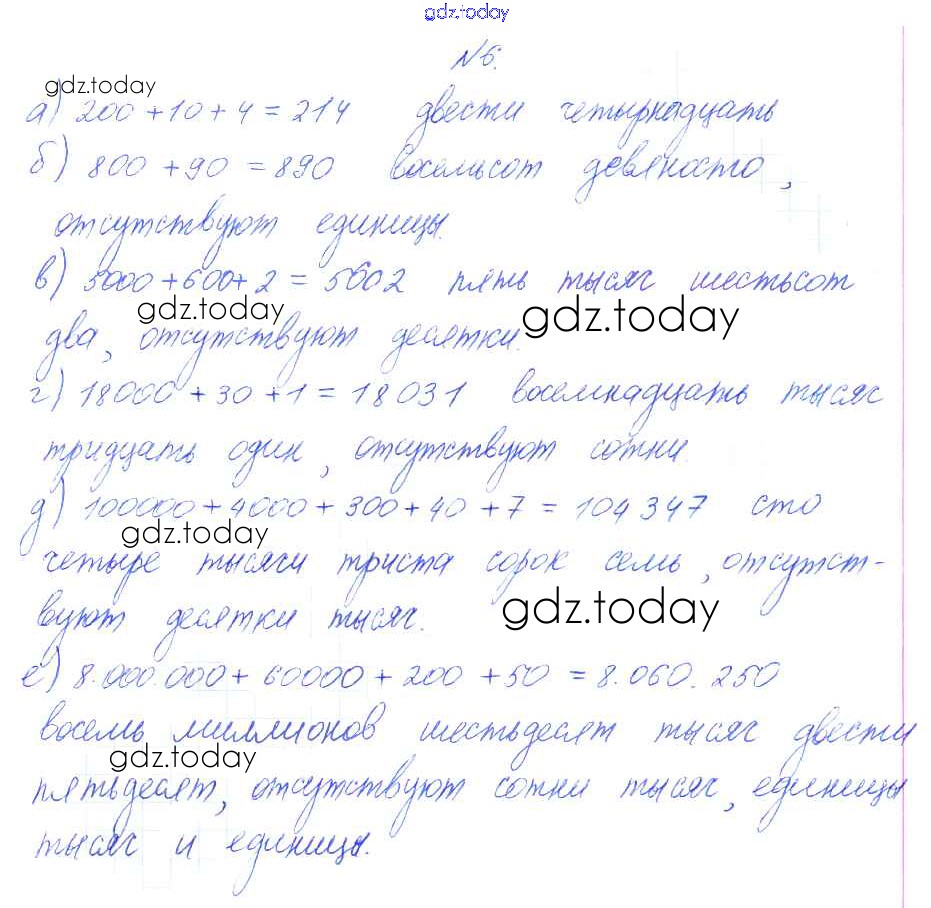 gdz.today
№6.
gdz.today
а) 200 + 10 + 4 = 214 двести четырнадцать
б) 800 + 90 = 890 восемьсот девяносто,
отсутствуют единицы.
в) 5000 + 600 + 2 = 5602 пять тысяч шестьсот
gdz.today gdz.today
два, отсутствуют десятки.
г) 18000 + 30 + 1 = 18031 восемнадцать тысяч
тридцать один, отсутствуют сотни.
д) 100000 + 4000 + 300 + 40 + 7 = 104347 сто
gdz.today
четыре тысячи триста сорок семь, отсутст-
вуют десятки тысяч.
gdz.today
е) 8.000.000 + 60000 + 200 + 50 = 8.060.250
восемь миллионов шестьдесят тысяч двести
gdz.today
пятьдесят, отсутствуют сотни тысяч, единицы
тысяч и единицы.